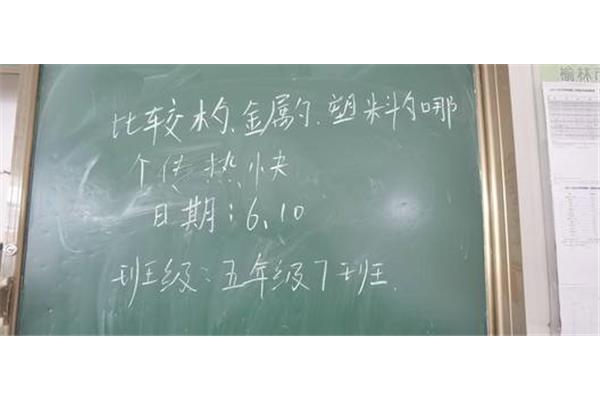 比较木勺、金属勺、塑料勺哪
个传热快
日期：6、10
班级：五年级7班.
榆林市